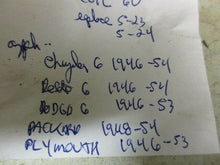 5-23
5-24
Chrysler 6 1946-54
DeSoto 6 1946-54
DODGE 6 1946-53
PACKARD 1948-54
PLYMOUTH 1946-53